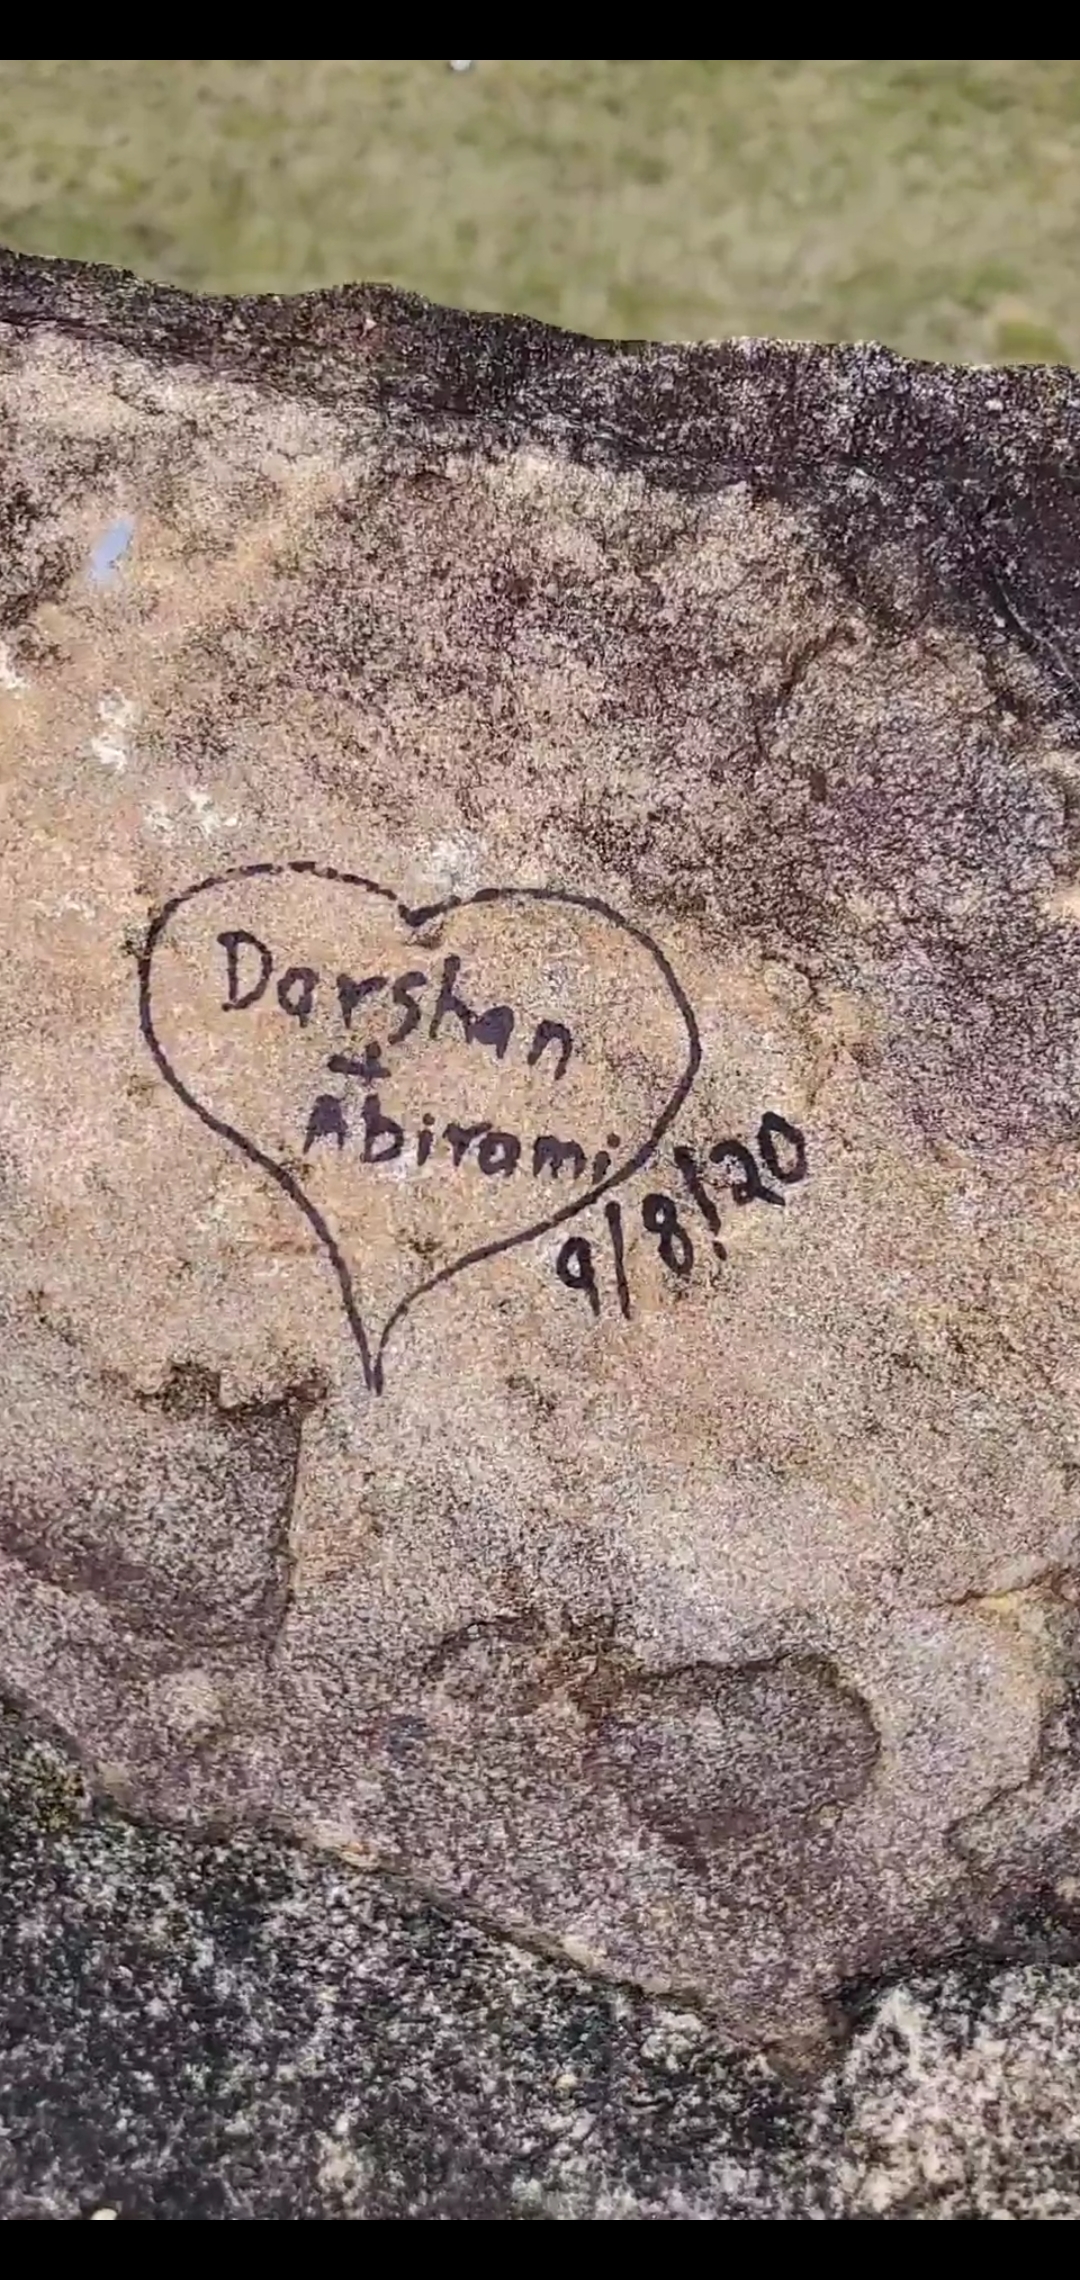 Darshan
+
Abirami
9/8/20